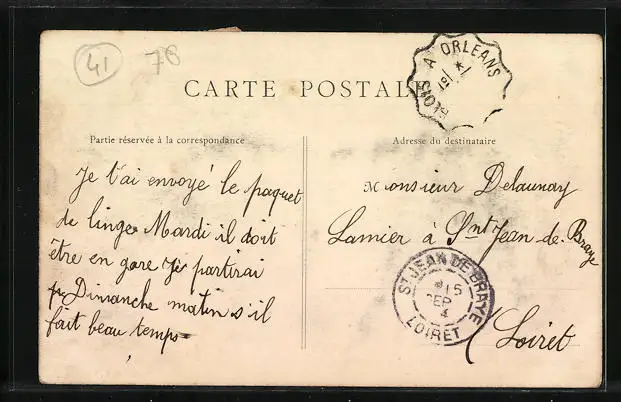 41
76
BLOIS A ORLEANS
CARTE POSTALE
Partie réservée à la correspondance
Adresse du destinataire
Je t'ai envoyé le paquet
de linge Mardi il doit
être en gare Je partirai
Dimanche matin s'il
fait beau temps
Monsieur Delaunay
Lamier à Snt Jean de Braye
ST JEAN DE BRAYE
15
SEP
LOIRET
Loiret